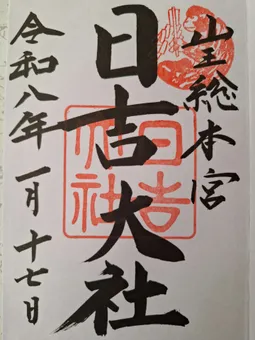 山王総本宮
日吉大社
令和八年一月十七日
日吉
大社